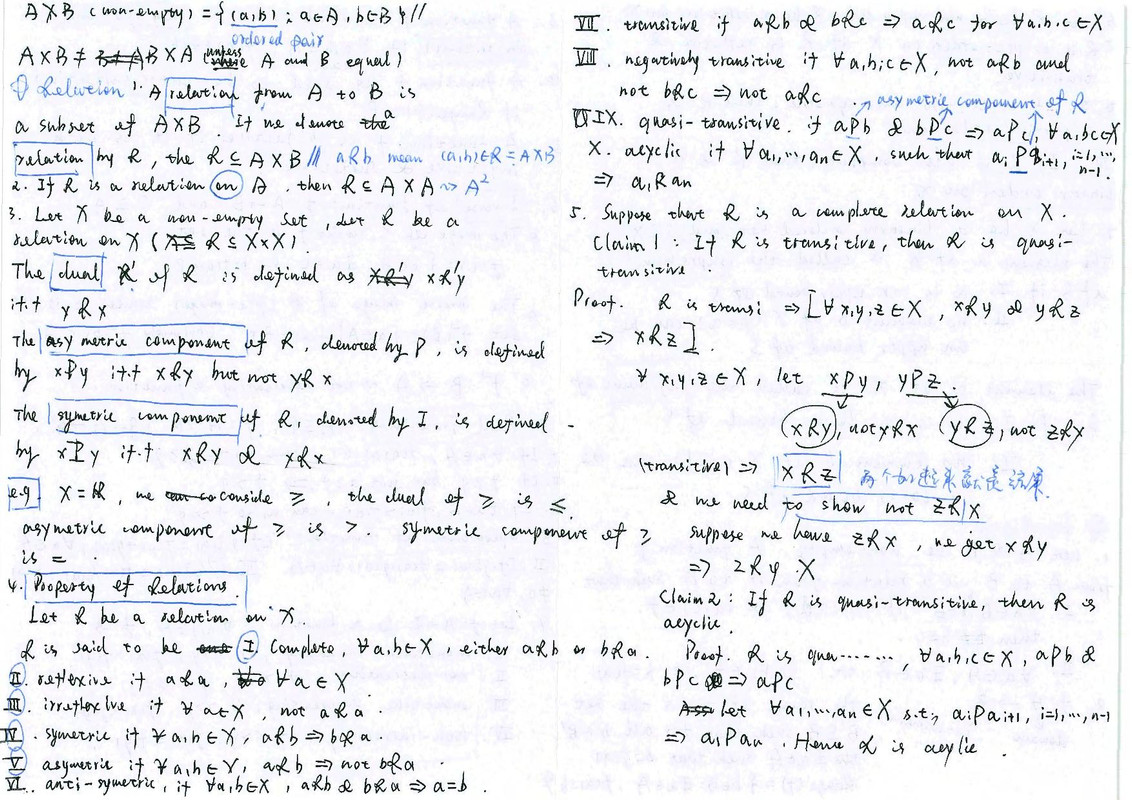 A×B (non-empty) = { (a,b) : a∈A, b∈B } //
ordered pair
A×B ≠ B×A (unless A and B equal)
① Relation : A relation from A to B is
a subset of A×B. If we denote a
relation by R, the R ⊆ A×B /// aRb mean (a,b)∈R ⊆ A×B
2. If R is a relation on A. then R ⊆ A×A ~> A²
3. Let X be a non-empty set, Let R be a
relation on X ( R ⊆ X×X)
The dual R' of R is defined as xR'y
iff yRx
The asymetric component of R, denoted by P, is defined
by xPy iff xRy but not yRx
The symetric component of R, denoted by I, is defined
by xIy iff xRy & xRx
e.g. X=R, we conside ≥, the dual of ≥ is ≤,
asymetric component of ≥ is > symetric component of ≥
is =
4. Property of Relations.
Let R be a relation on X
R is said to be I Complete, ∀a,b∈X, either aRb or bRa.
II. reflexive if aRa, ∀a∈X
III. irreflexive if ∀a∈X, not aRa
IV. symetric if ∀a,b∈X, aRb ⇒ bRa
V. asymetric if ∀a,b∈X, aRb ⇒ not bRa.
VI. anti-symetric, if ∀a,b∈X, aRb & bRa ⇒ a=b.
VII. transitive if aRb & bRc ⇒ aRc for ∀a,b,c∈X
VIII. negatively transitive if ∀a,b,c∈X, not aRb and
not bRc ⇒ not aRc.
asymetric component of R
IX. quasi-transitive. if aPb & bPc ⇒ aPc, ∀a,b,c∈X
X. acyclic if ∀a1,...,an∈X, such that aiPai+1, i=1,...,n-1.
⇒ a1Ran
5. Suppose that R is a complete relation on X.
Claim 1 : If R is transitive, then R is quasi-
transitive.
Proof. R is transi ⇒ [∀x,y,z∈X, xRy & yRz
⇒ xRz].
∀x,y,z∈X, let xPy, yPz
xRy, not yRx yRz, not zRy
(transitive) ⇒ xRz 两个加起来就是结果.
& we need to show not zRx
suppose we have zRx, we get xRy
⇒ zRy. X
Claim 2 : If R is quasi-transitive, then R is
acyclic.
Proof. R is qua--------, ∀a,b,c∈X, aPb &
bPc ⇒ aPc
Let ∀a1,...,an∈X s.t., aiPai+1, i=1,...,n-1
⇒ a1Pan. Hence R is acylic.